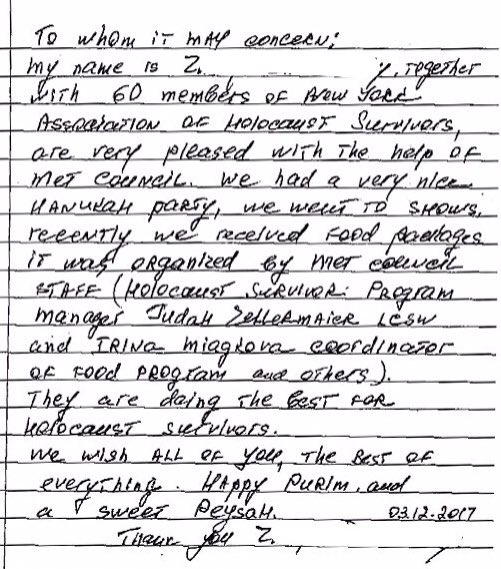 To whom it may concern;
my name is Z. y, together
with 60 members of New York
Association of Holocaust Survivors,
are very pleased with the help of
Met Council. We had a very nice
Hanukah party, we went to shows,
recently we received food packages
it was organized by Met Council
staff (Holocaust Survivor: Program
manager Judah Zellermaier LCSW
and Irina Miagkova coordinator
of food program and others).
They are doing the best for
Holocaust survivors.
We wish all of you, the best of
everything. Happy Purim, and
a sweet Peysah. 03.12.2017
Thank you Z.